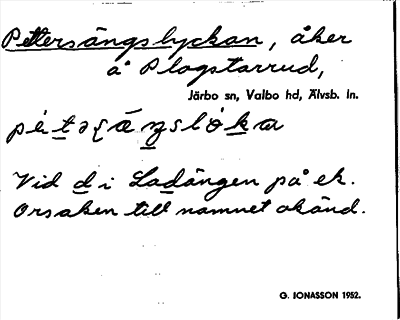 Pettersängslyckan, åker
å Plogstarrud,
Järbo sn, Valbo hd, Älvsb. ln.
Vid d i Ladängen på ek.
Orsaken till namnet okänd.
G. JONASSON 1952.